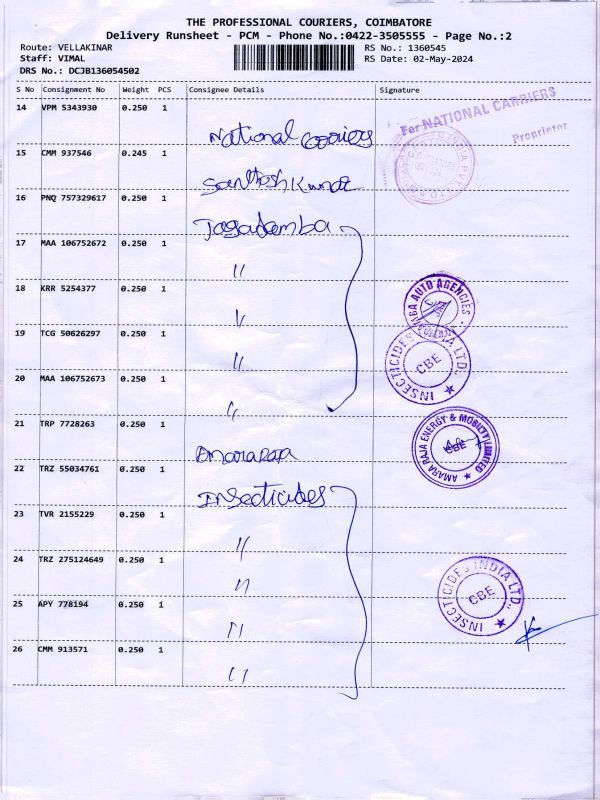 THE PROFESSIONAL COURIERS, COIMBATORE
Delivery Runsheet - PCM - Phone No.:0422-3505555 - Page No.:2
Route: VELLAKINAR RS No.: 1360545
Staff: VIMAL RS Date: 02-May-2024
DRS No.: DCJB136054502
S No Consignment No Weight PCS Consignee Details Signature
14 VPM 5343930 0.250 1
National Couriers
For NATIONAL CARRIERS
Proprietor
15 CMM 937546 0.245 1
Santhosh Kumar
16 PNQ 757329617 0.250 1
Jagadamba
17 MAA 106752672 0.250 1
"
18 KRR 5254377 0.250 1
"
AMBA AUTO AGENCIES
19 TCG 50626297 0.250 1
"
INSECTICIDES INDIA LTD., CBE
20 MAA 106752673 0.250 1
"
21 TRP 7728263 0.250 1
Amararaja
AMARA RAJA ENERGY & MOBILITY LIMITED CBE
22 TRZ 55034761 0.250 1
Insecticides
23 TVR 2155229 0.250 1
"
24 TRZ 275124649 0.250 1
"
25 APY 778194 0.250 1
"
INSECTICIDES INDIA LTD., CBE
26 CMM 913571 0.250 1
"